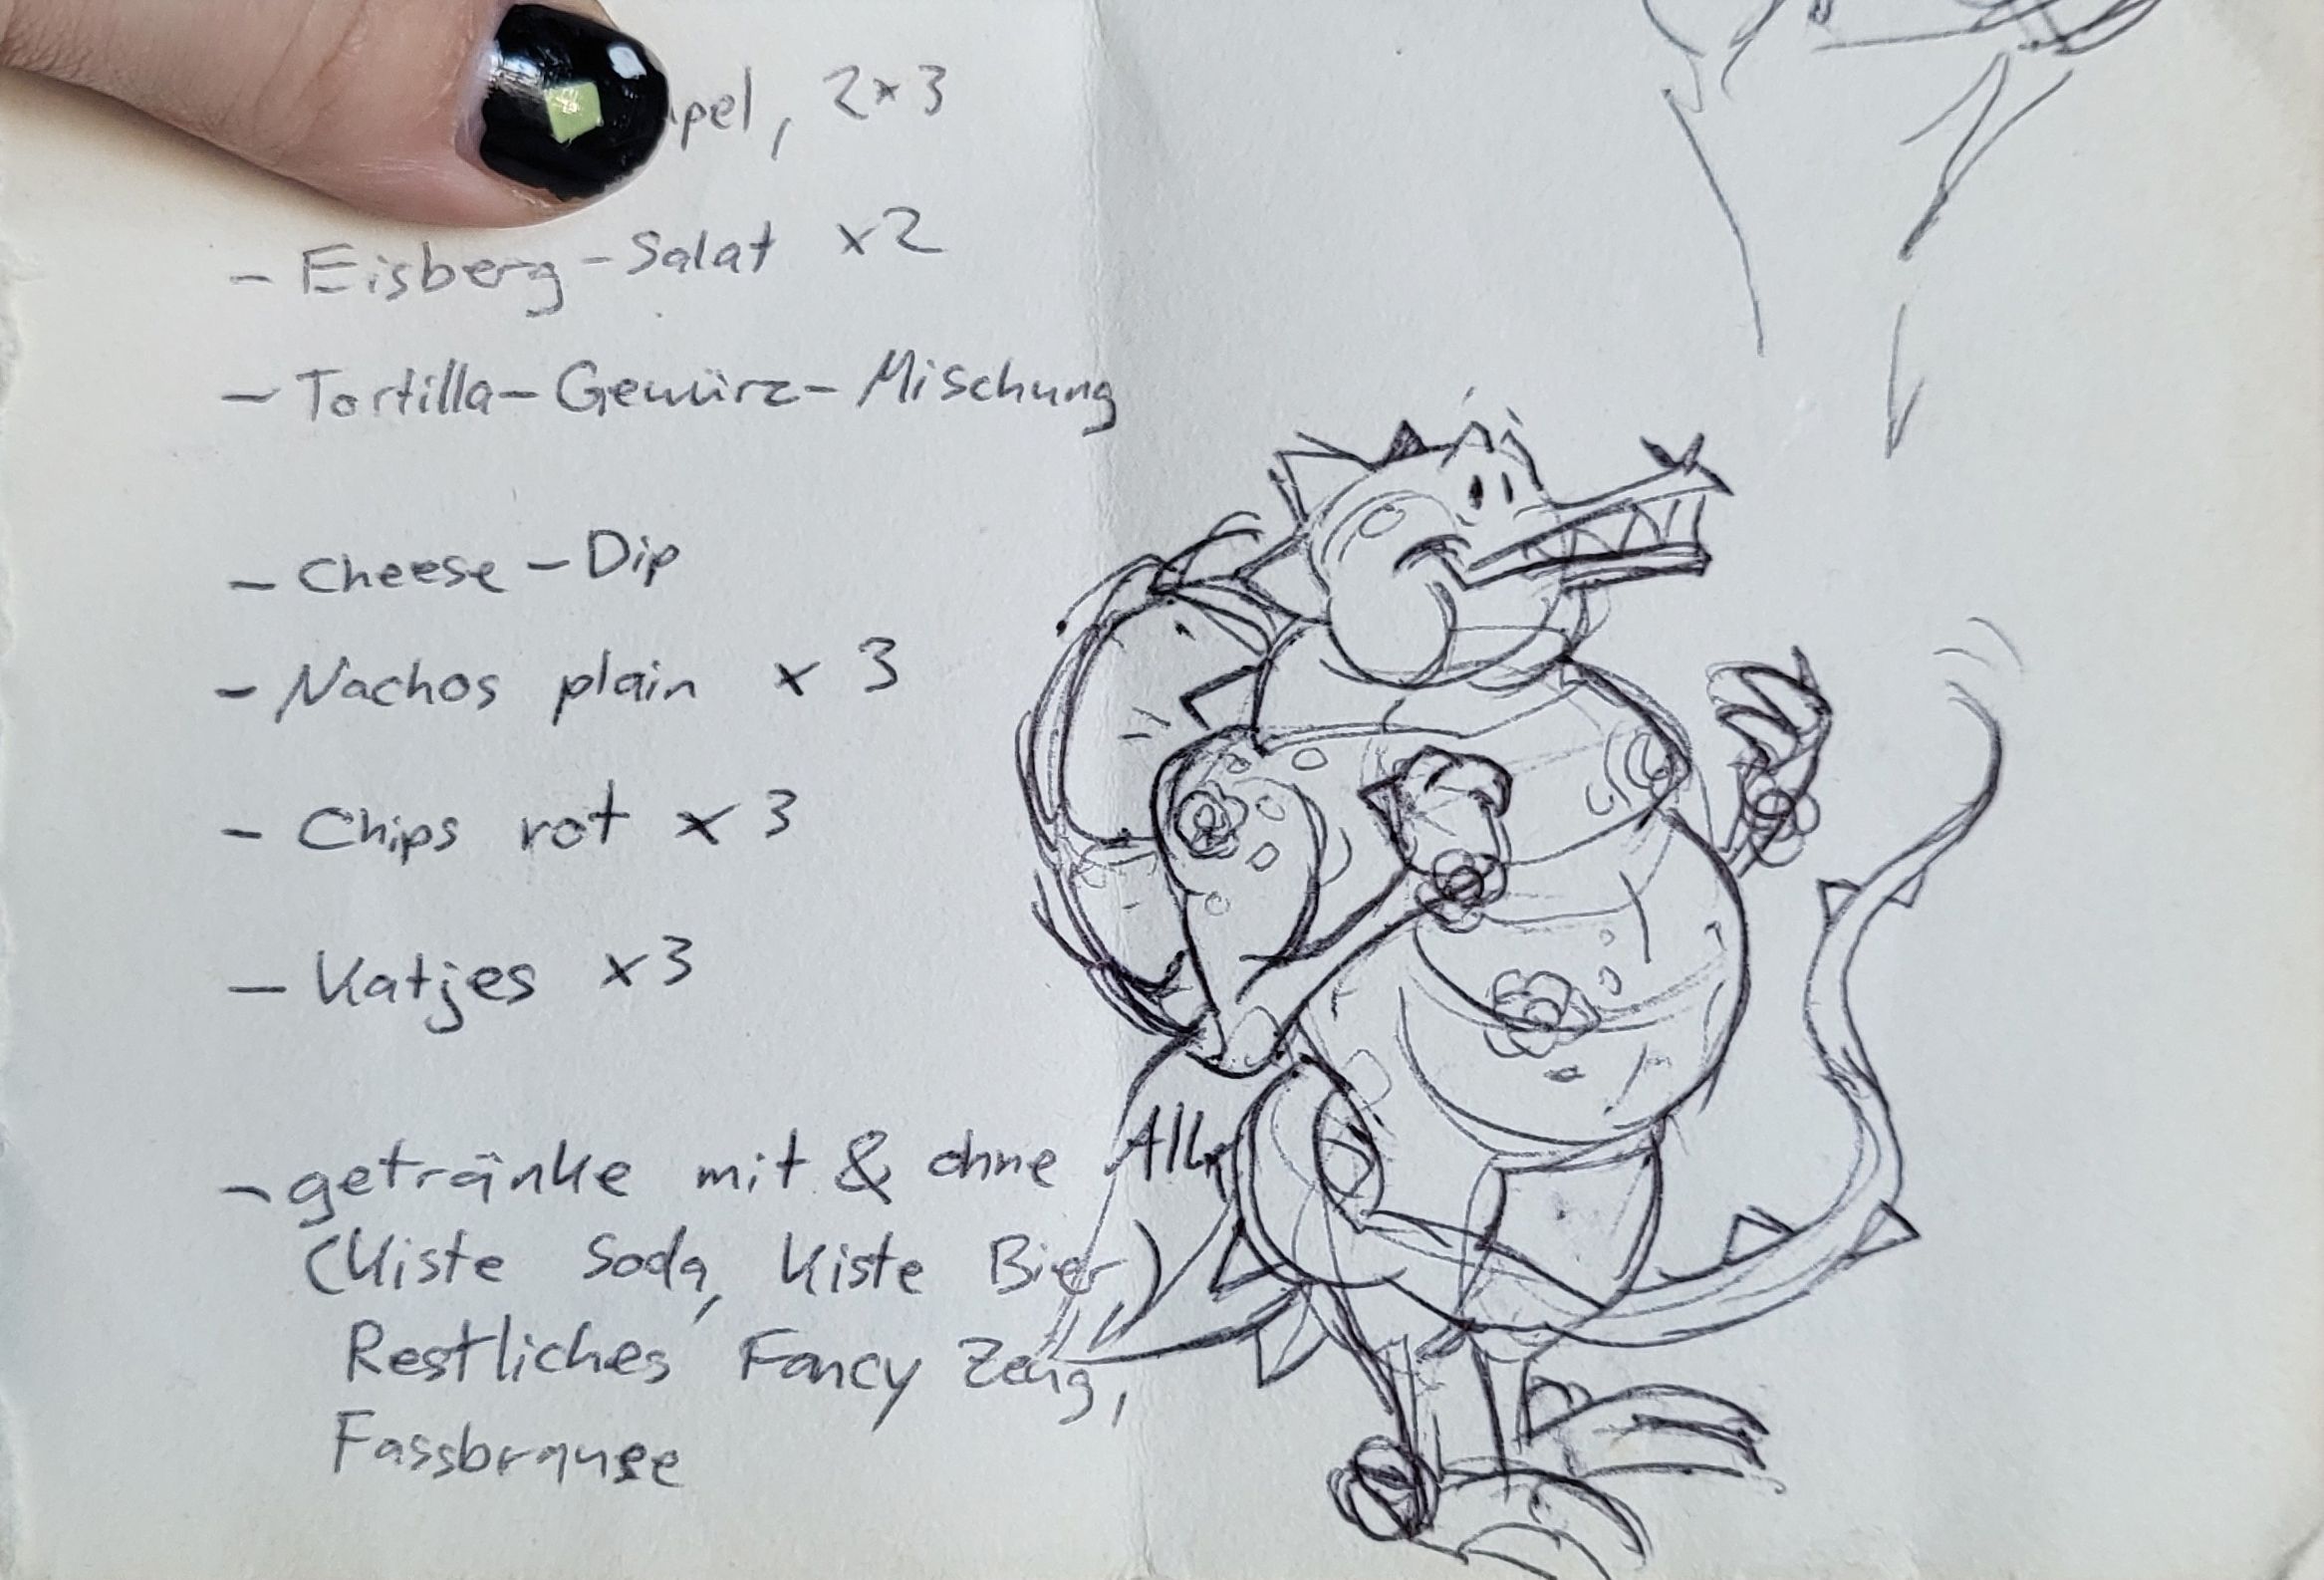 pel, 2x3
- Eisberg-Salat x2
- Tortilla-Gewürz-Mischung
- Cheese-Dip
- Nachos plain x 3
- Chips rot x 3
- Katjes x3
- getränke mit & ohne Alk
(Kiste Soda, Kiste Bier)
Restliches Fancy Zeug,
Fassbrause